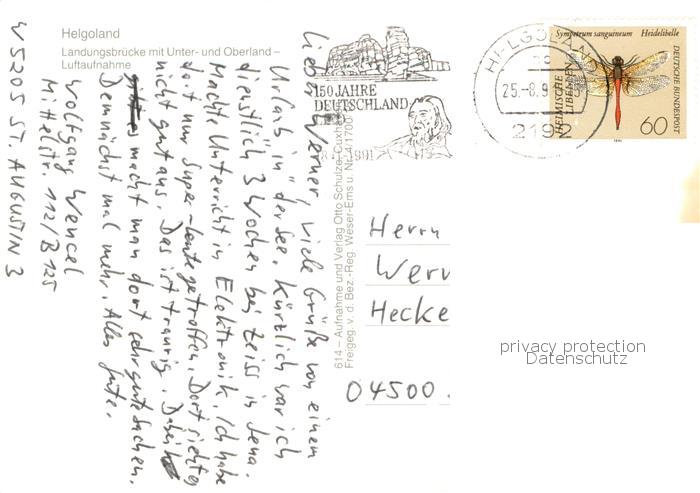 Helgoland
Landungsbrücke mit Unter- und Oberland –
Luftaufnahme
Lieber Werner, viele Grüße von einem
Urlaub "in" der See. Kürzlich war ich
dienstlich 3 Wochen bei Zeiss in Jena.
Machte Unterricht in Elektronik. Ich habe
dort nur Super-Leute getroffen. Dort sieht es
nicht gut aus. Das ist traurig. Dabei
macht man dort sehr gute Sachen.
Demnächst mal mehr. Alles Gute.
Wolfgang Wencel
Mittelstr. 112/B 125
W 5205 ST. AUGUSTIN 3
614 – Aufnahme und Verlag Otto Schulze, Cuxh
Freigeg. v. d. Bez.-Reg. Weser-Ems u. Nr.
150 JAHRE
DEUTSCHLAND
1991
HELGOLAND
25.-8.9
2192
Sympetrum sanguineum Heidelibelle
HEIMISCHE
LIBELLEN
DEUTSCHE BUNDESPOST
60
1991
Herrn
Wern
Hecke
04500
privacy protection
Datenschutz